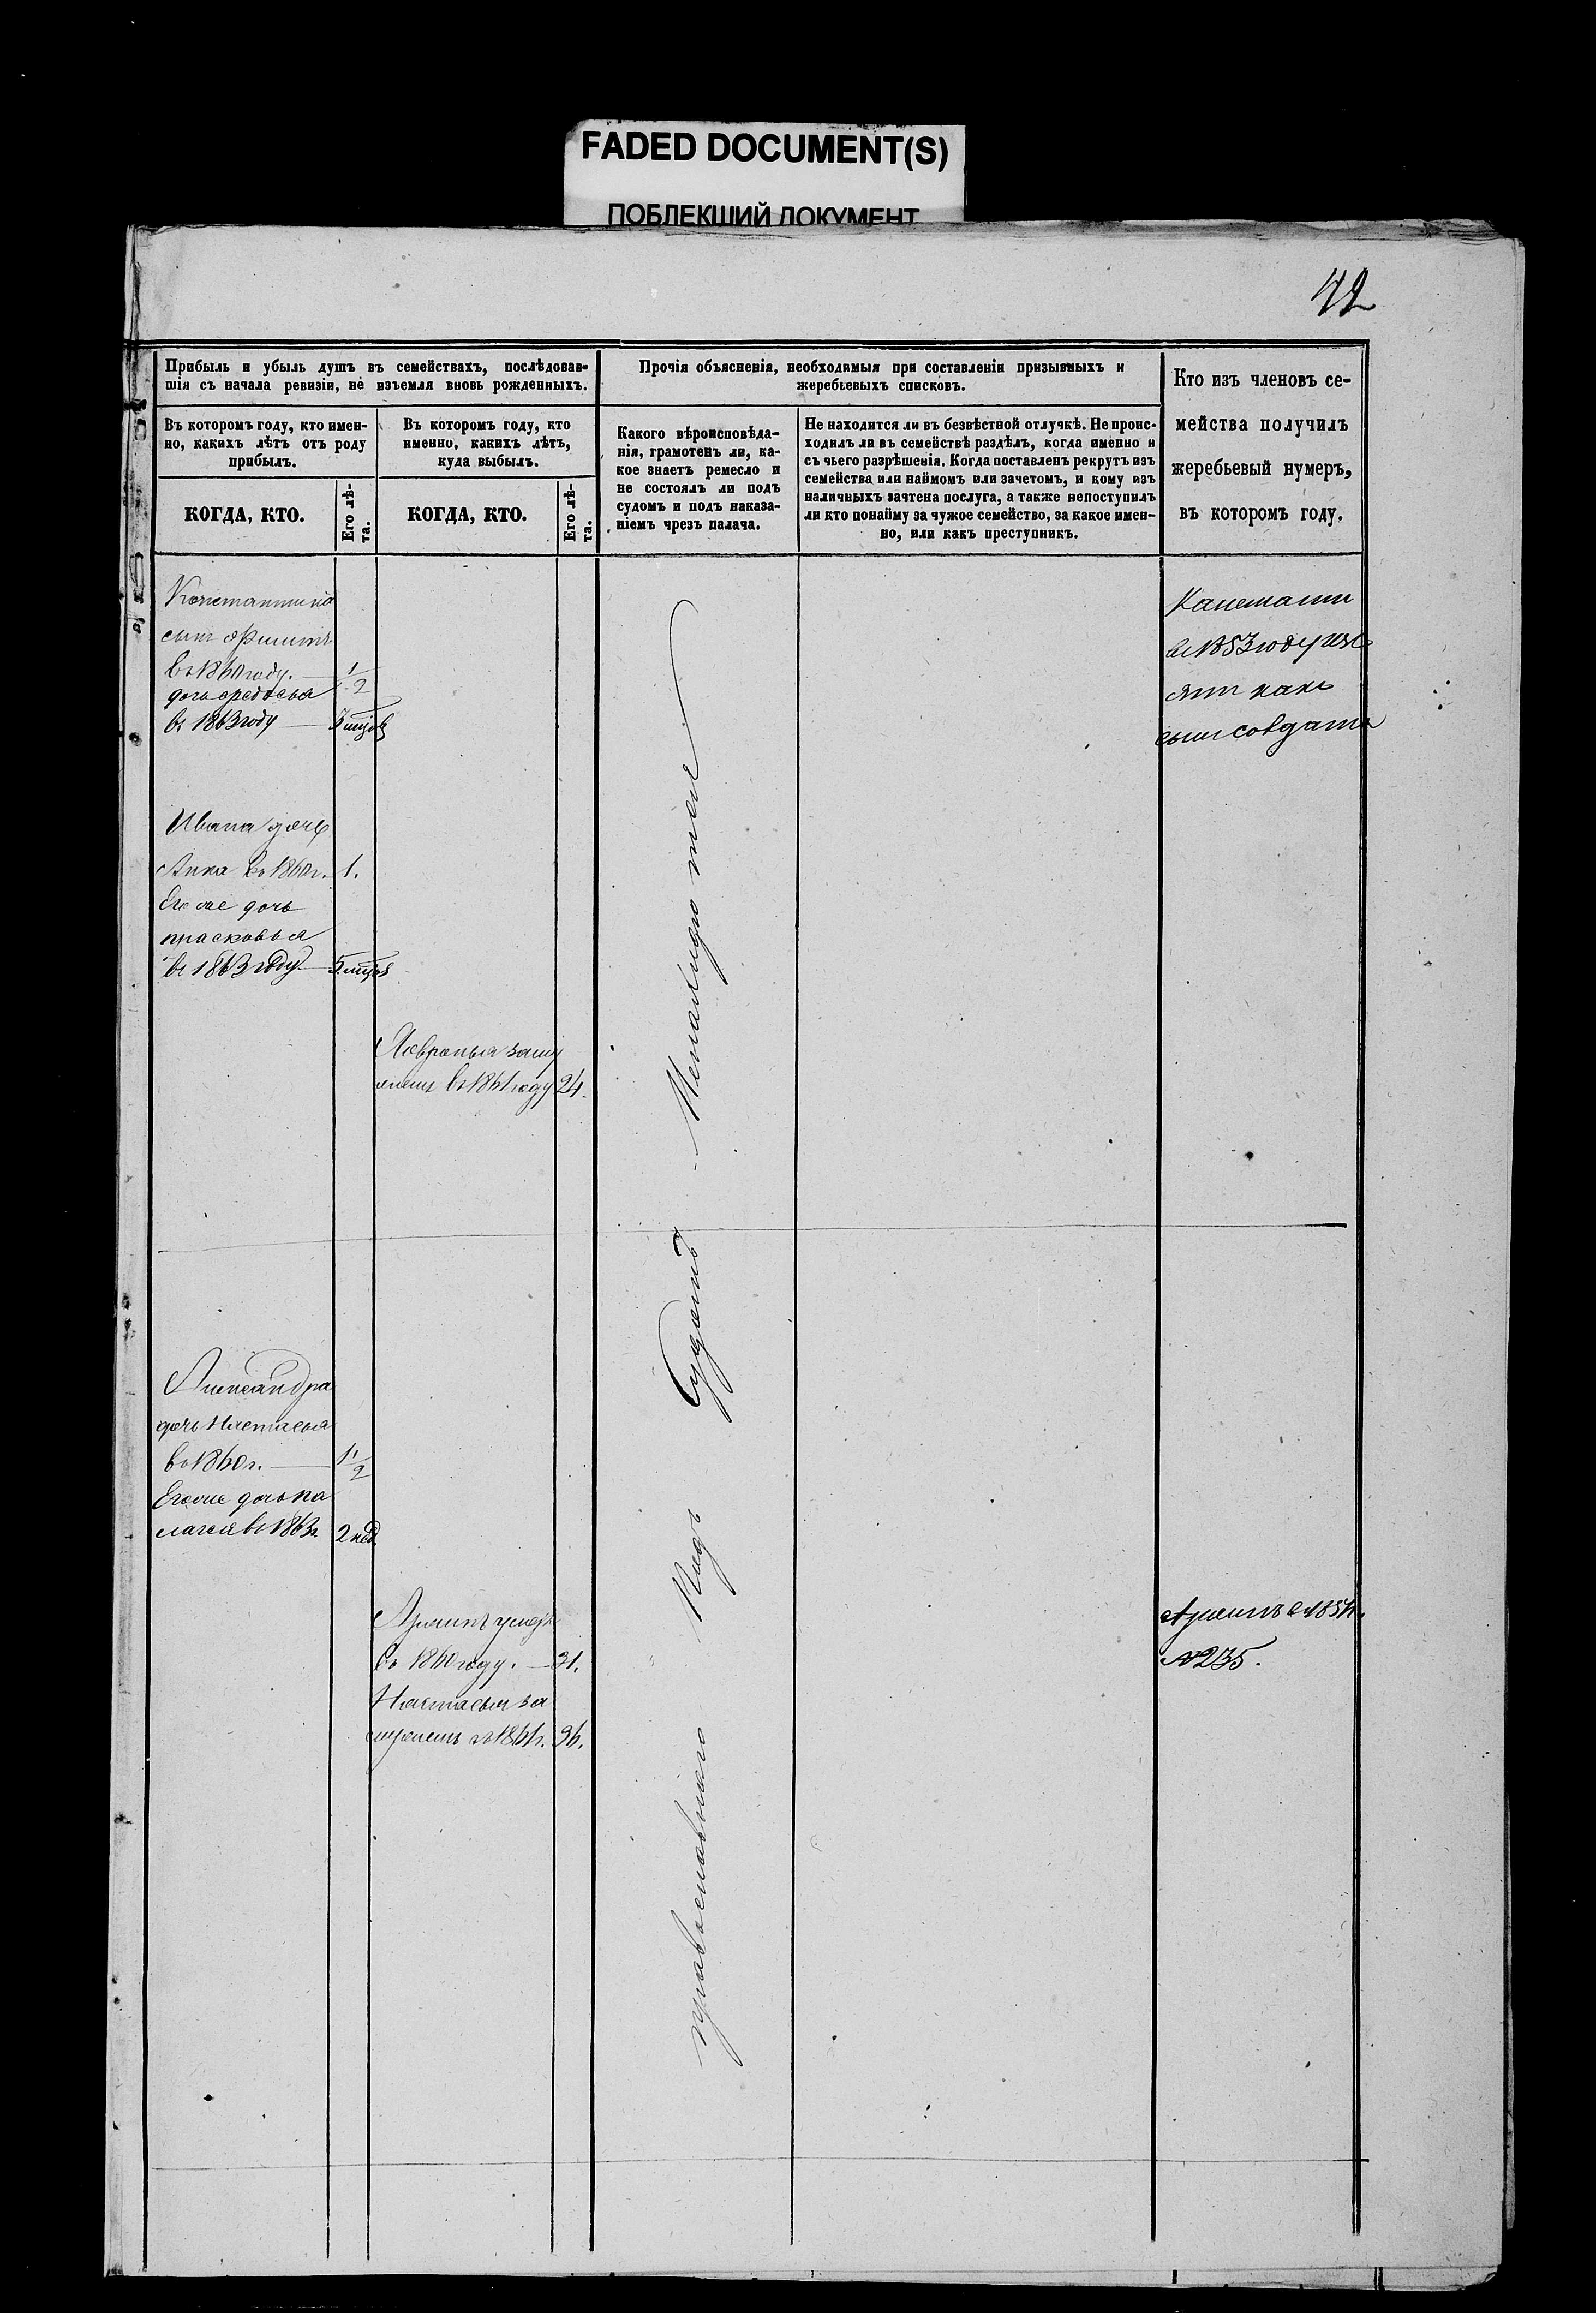 FADED DOCUMENT(S)
ПОБЛЕКШИЙ ДОКУМЕНТ
42
Прибыль и убыль душъ въ семействахъ, послѣдовав-
шія съ начала ревизіи, не изъемля вновь рожденныхъ.
Въ которомъ году, кто имен-
но, какихъ лѣтъ отъ роду
прибылъ.
КОГДА, КТО.
Его лѣ-
та.
Въ которомъ году, кто
именно, какихъ лѣтъ,
куда выбылъ.
КОГДА, КТО.
Его лѣ-
та.
Прочія объясненія, необходимыя при составленіи призывныхъ и
жеребьевыхъ списковъ.
Какого вѣроисповѣда-
нія, грамотенъ ли, ка-
кое знаетъ ремесло и
не состоялъ ли подъ
судомъ и подъ наказа-
ніемъ чрезъ палача.
Не находится ли въ безвѣстной отлучкѣ. Не проис-
ходилъ ли въ семействѣ раздѣлъ, когда именно и
съ чьего разрѣшенія. Когда поставленъ рекрутъ изъ
семейства или наймомъ или зачетомъ, и кому изъ
наличныхъ зачтена послуга, а также непоступилъ
ли кто понайму за чужое семейство, за какое имен-
но, или какъ преступникъ.
Кто изъ членовъ се-
мейства получилъ
жеребьевый нумеръ,
въ которомъ году.
Констант­ина
сынъ
въ 1860 году. — 1/2
дочь Федосья
въ 1863 году — 3
Ивана дочь
Анна въ 1860 г. 1.
Его же дочь
прасковья
въ 1863 году — 5
въ 1861 году 24.
Александра
дочь Настасья
въ 1860 г. — 1/2
Его же дочь па
лагея въ 1863 г. 2 нед.
въ 1860 году. — 31.
Настасья за
въ 1861 г. 36.
православнаго Подъ Судомъ
въ 1853 году изъ
ятъ какъ
сынъ солдата
№ 235.